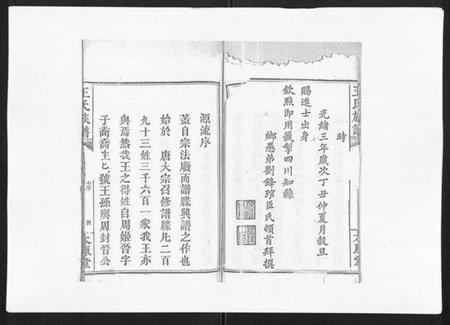 王氏族譜
時
光緒三年歲次丁丑仲夏月穀旦
賜進士出身
欽點即用籤掣四川知縣
鄉愚弟劉鋒琯臣氏頓首拜撰
源流序
蓋自宗法廢而譜牒興譜之作也
始於 唐太宗召修譜牒凡二百
九十三姓三千六百一家我王亦
與焉然我王之得姓自周姬晉字
子喬喬生七號王孫與周封晉公
王氏族譜
序
太原堂